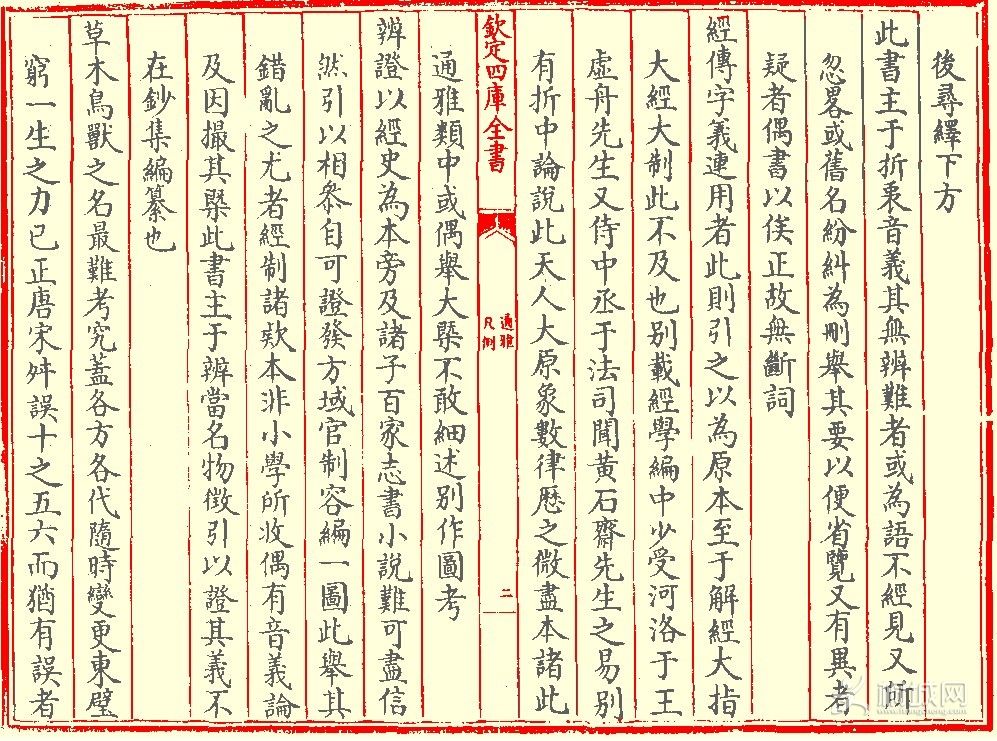 後尋繹下方
此書主于折衷音義其無辨難者或為語不經見又所
忽畧或舊名紛糾為刪舉其要以便省覽又有異者
疑者偶書以俟正故無斷詞
經傳字義連用者此則引之以為原本至于解經大指
大經大制此不及也别載經學編中少受河洛于王
虛舟先生又侍中丞于法司聞黄石齋先生之易别
有折中論說此天人大原象數律歴之微盡本諸此
欽定四庫全書
通雅
凡例
二
通雅類中或偶舉大槩不敢細述别作圖考
辨證以經史為本旁及諸子百家志書小說難可盡信
然引以相叅自可證發方域官制容編一圖此舉其
錯亂之尤者經制諸欵本非小學所收偶有音義論
及因撮其槩此書主于辨當名物徵引以證其義不
在鈔集編纂也
草木鳥獸之名最難考究蓋各方各代隨時變更東璧
窮一生之力已正唐宋舛誤十之五六而猶有誤者